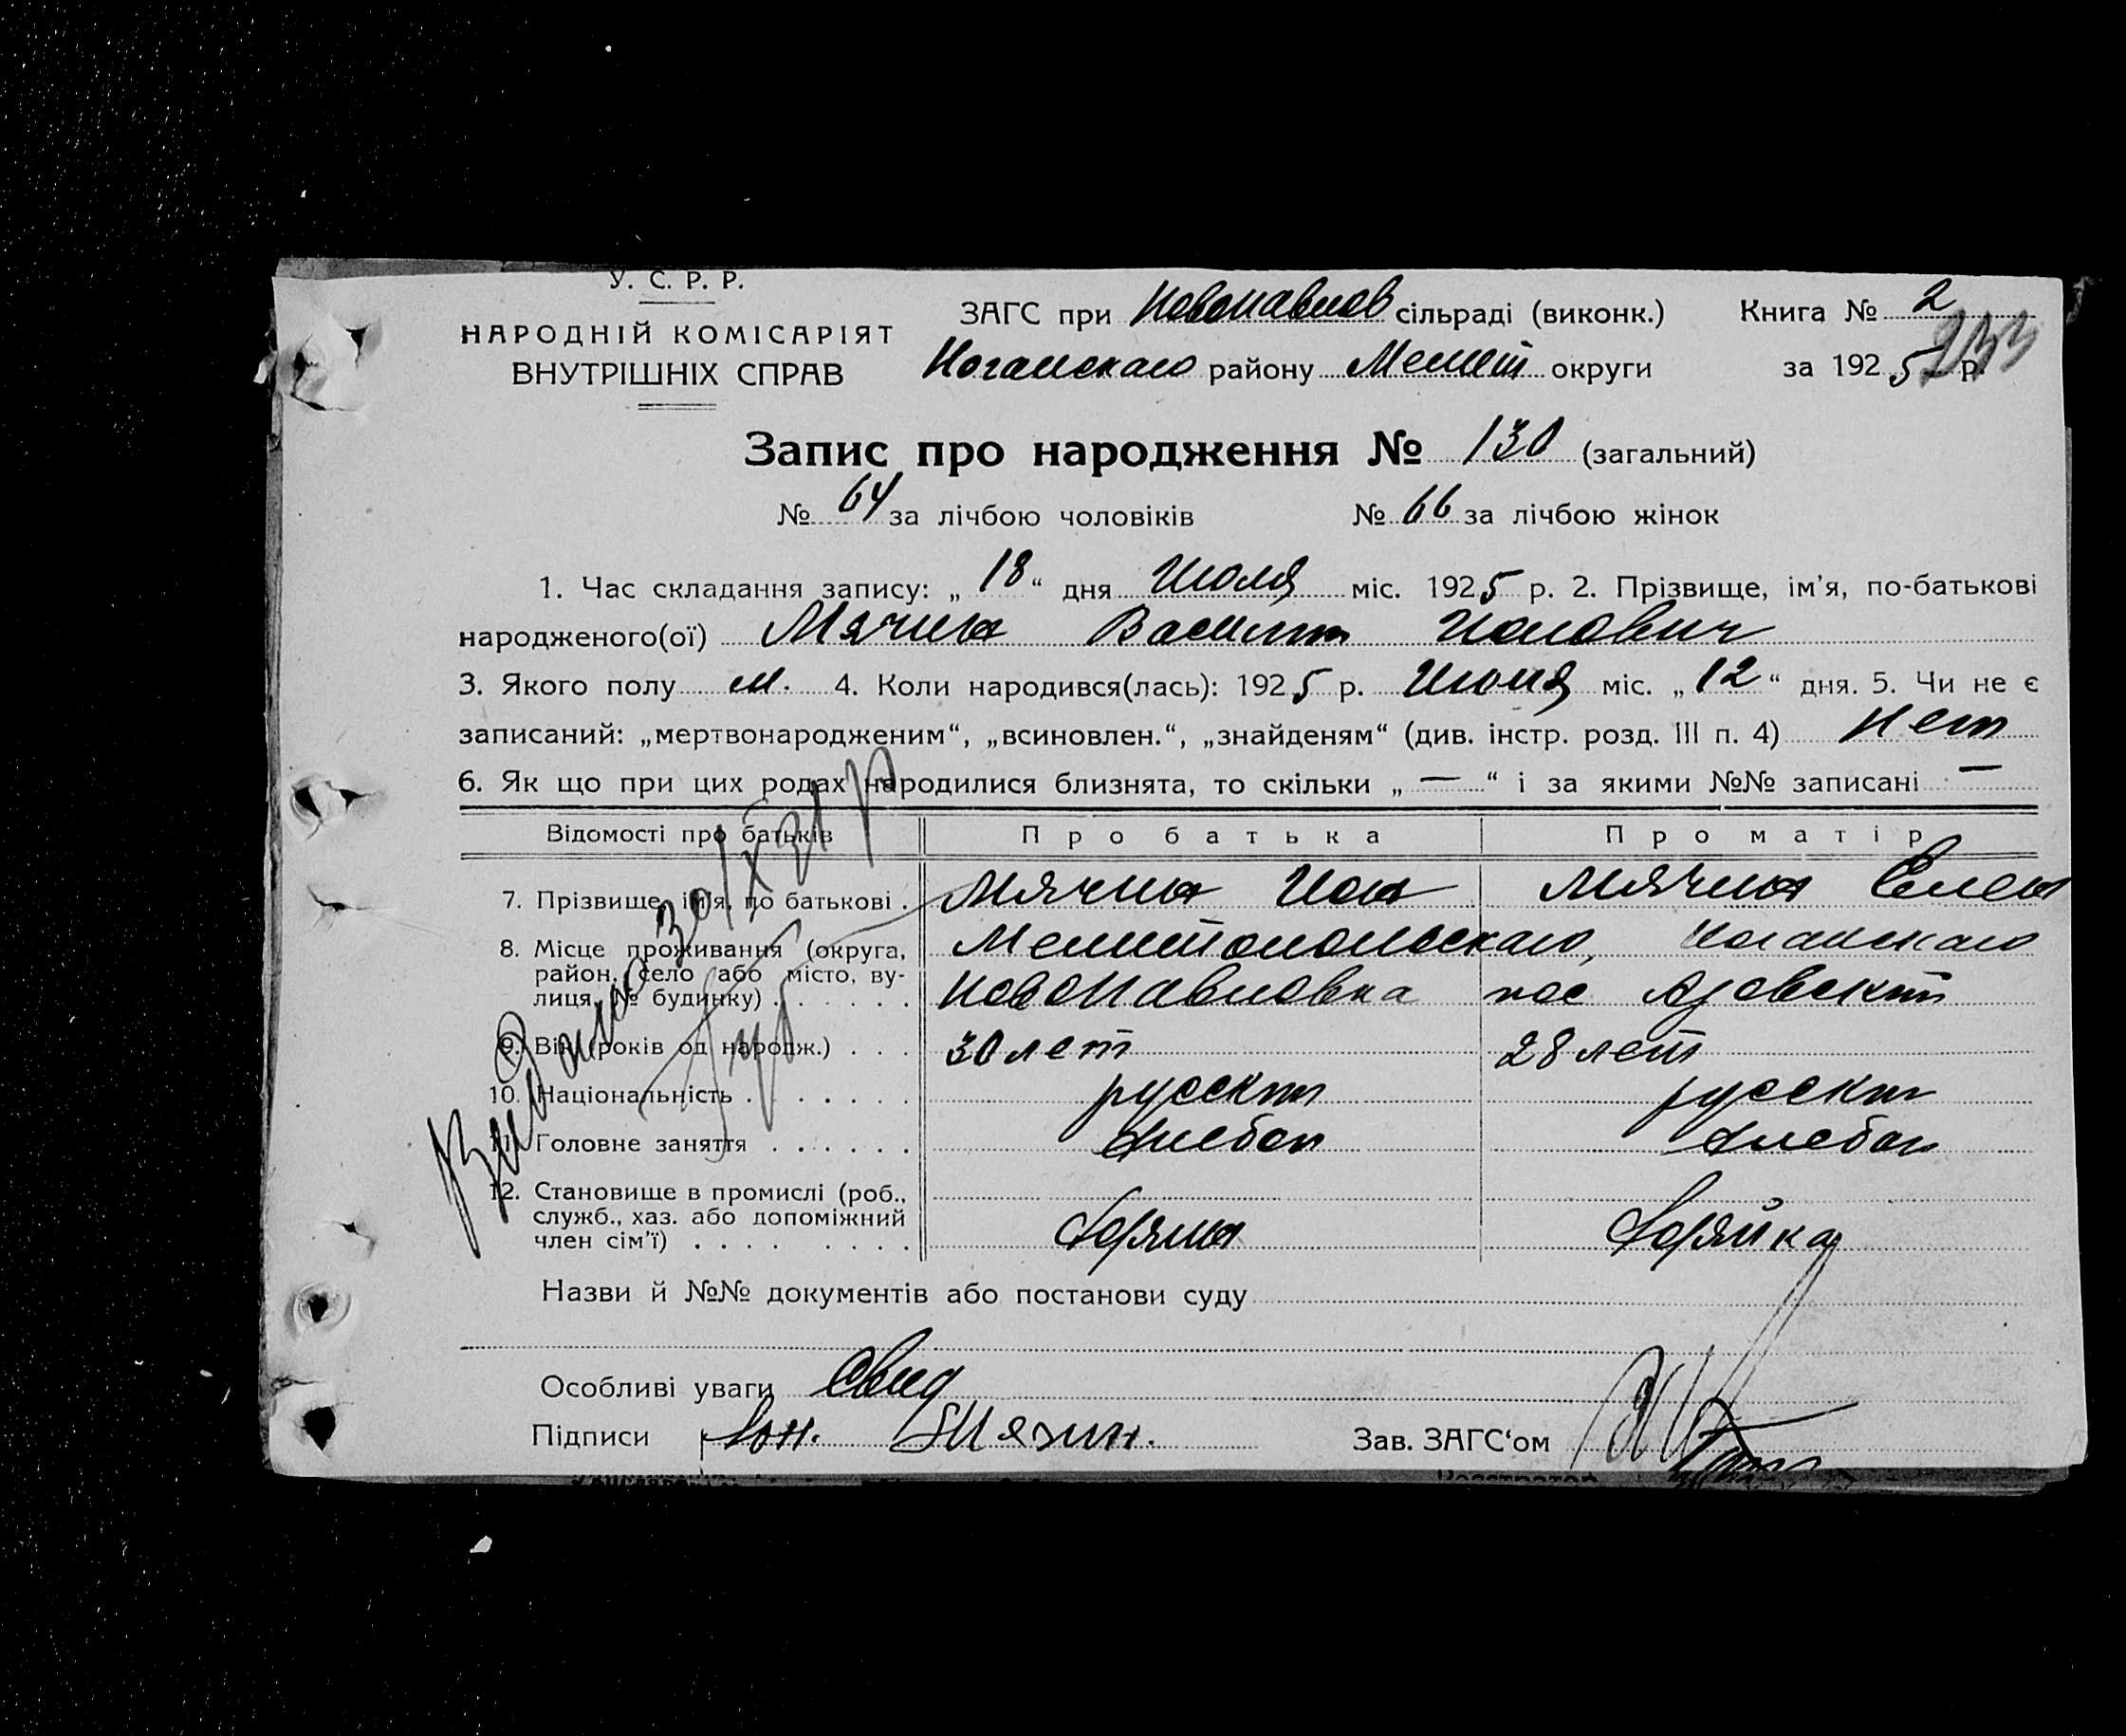 У. С. Р. Р.
НАРОДНІЙ КОМІСАРІЯТ
ВНУТРІШНІХ СПРАВ
ЗАГС при Новопавлов сільраді (виконк.) Книга № 2
Ногайскаго району Мелит округи за 1925 р. 233
Запис про народження № 130 (загальний)
№ 64 за лічбою чоловіків № 66 за лічбою жінок
1. Час складання запису: „18“ дня Июля міс. 1925 р. 2. Прізвище, ім'я, по-батькові
народженого(ої) Мячин Василий Ионович
3. Якого полу м. 4. Коли народився(лась): 1925 р. міс. „12“ дня. 5. Чи не є
записаний: „мертвонародженим“, „всиновлен.“, „знайденям“ (див. інстр. розд. III п. 4) Нет
6. Як що при цих родах народилися близнята, то скільки „—“ і за якими №№ записані —
Відомості про батьків Про батька Про матір
7. Прізвище, ім'я, по батькові . Мячин Ион Мячина Елен
8. Місце проживання (округа, Мелитопольскаго, Ногайскаго
район, село або місто, ву-
лиця, № будинку) . . . . . . Новопавловка пос Азовский
9. Вік (років од народж.) . . . 30 лет 28 лет
10. Національність . . . . . . . русский русский
11. Головне заняття . . . . . . хлебоп хлебоп
12. Становище в промислі (роб.,
служб., хаз. або допоміжний
член сім'ї) . . . . . . . . Хозяин Хозяйка
Видано 30/X 31 р
Назви й №№ документів або постанови суду
Особливі уваги Свид
Підписи Ион. Мячин. Зав. ЗАГС‘ом